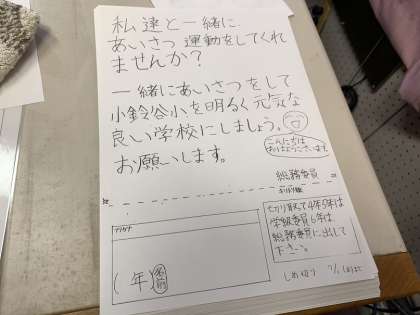 私達と一緒に
あいさつ運動をしてくれ
ませんか?
一緒にあいさつをして
小鈴谷小を明るく元気な
良い学校にしましょう。
こんにちは
おはようございます
お願いします。
総務委員
切り取って4年5年は
学級委員6年は
総務委員に出して
下さい。
(年)名前
しめ切り